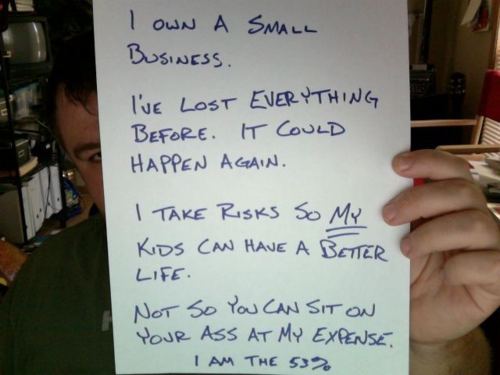 I OWN A SMALL
BUSINESS.
I'VE LOST EVERYTHING
BEFORE. IT COULD
HAPPEN AGAIN.
I TAKE RISKS SO MY
KIDS CAN HAVE A BETTER
LIFE.
NOT SO YOU CAN SIT ON
YOUR ASS AT MY EXPENSE.
I AM THE 53%